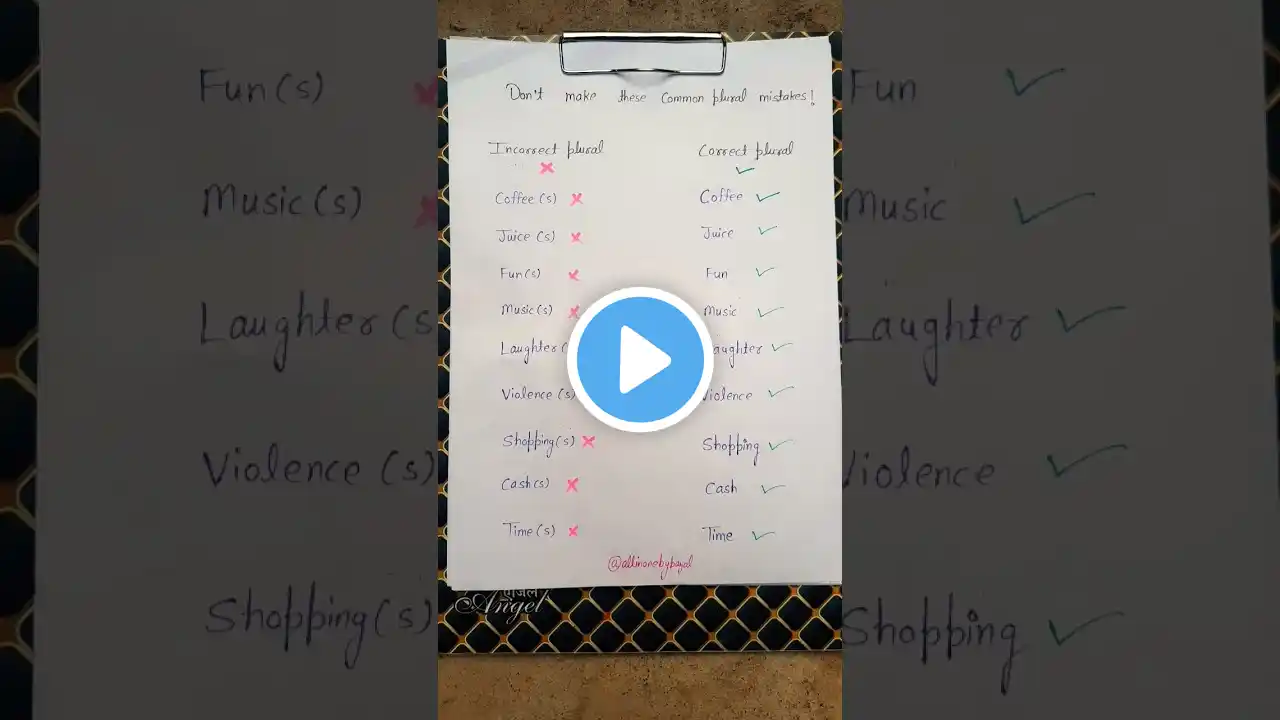 Don't make these Common plural mistakes!
Incorrect plural Correct plural
Coffee (s) Coffee
Juice (s) Juice
Fun(s) Fun
Music(s) Music
Laughter( aughter
Violence (s) Violence
Shopping(s) Shopping
Cash(s) Cash
Time(s) Time
@allinonebypayal
एंजेल
Angel
Fun(s) Fun
Music(s) Music
Laughter(s Laughter
Violence (s) Violence
Shopping(s) Shopping